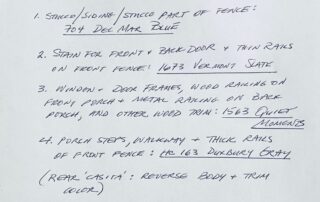 1. STUCCO/SIDING/STUCCO PART OF FENCE:
704 DEL MAR BLUE
2. STAIN FOR FRONT + BACK DOOR + THIN RAILS
ON FRONT FENCE: 1673 VERMONT SLATE
3. WINDOW + DOOR FRAMES, WOOD RAILING ON
FRONT PORCH + METAL RAILING ON BACK
PORCH, AND OTHER WOOD TRIM: 1563 QUIET
MOMENTS
4. PORCH STEPS, WALKWAY + THICK RAILS
OF FRONT FENCE: HC 163 DUXBURY GRAY
(REAR "CASITA": REVERSE BODY + TRIM
COLOR)